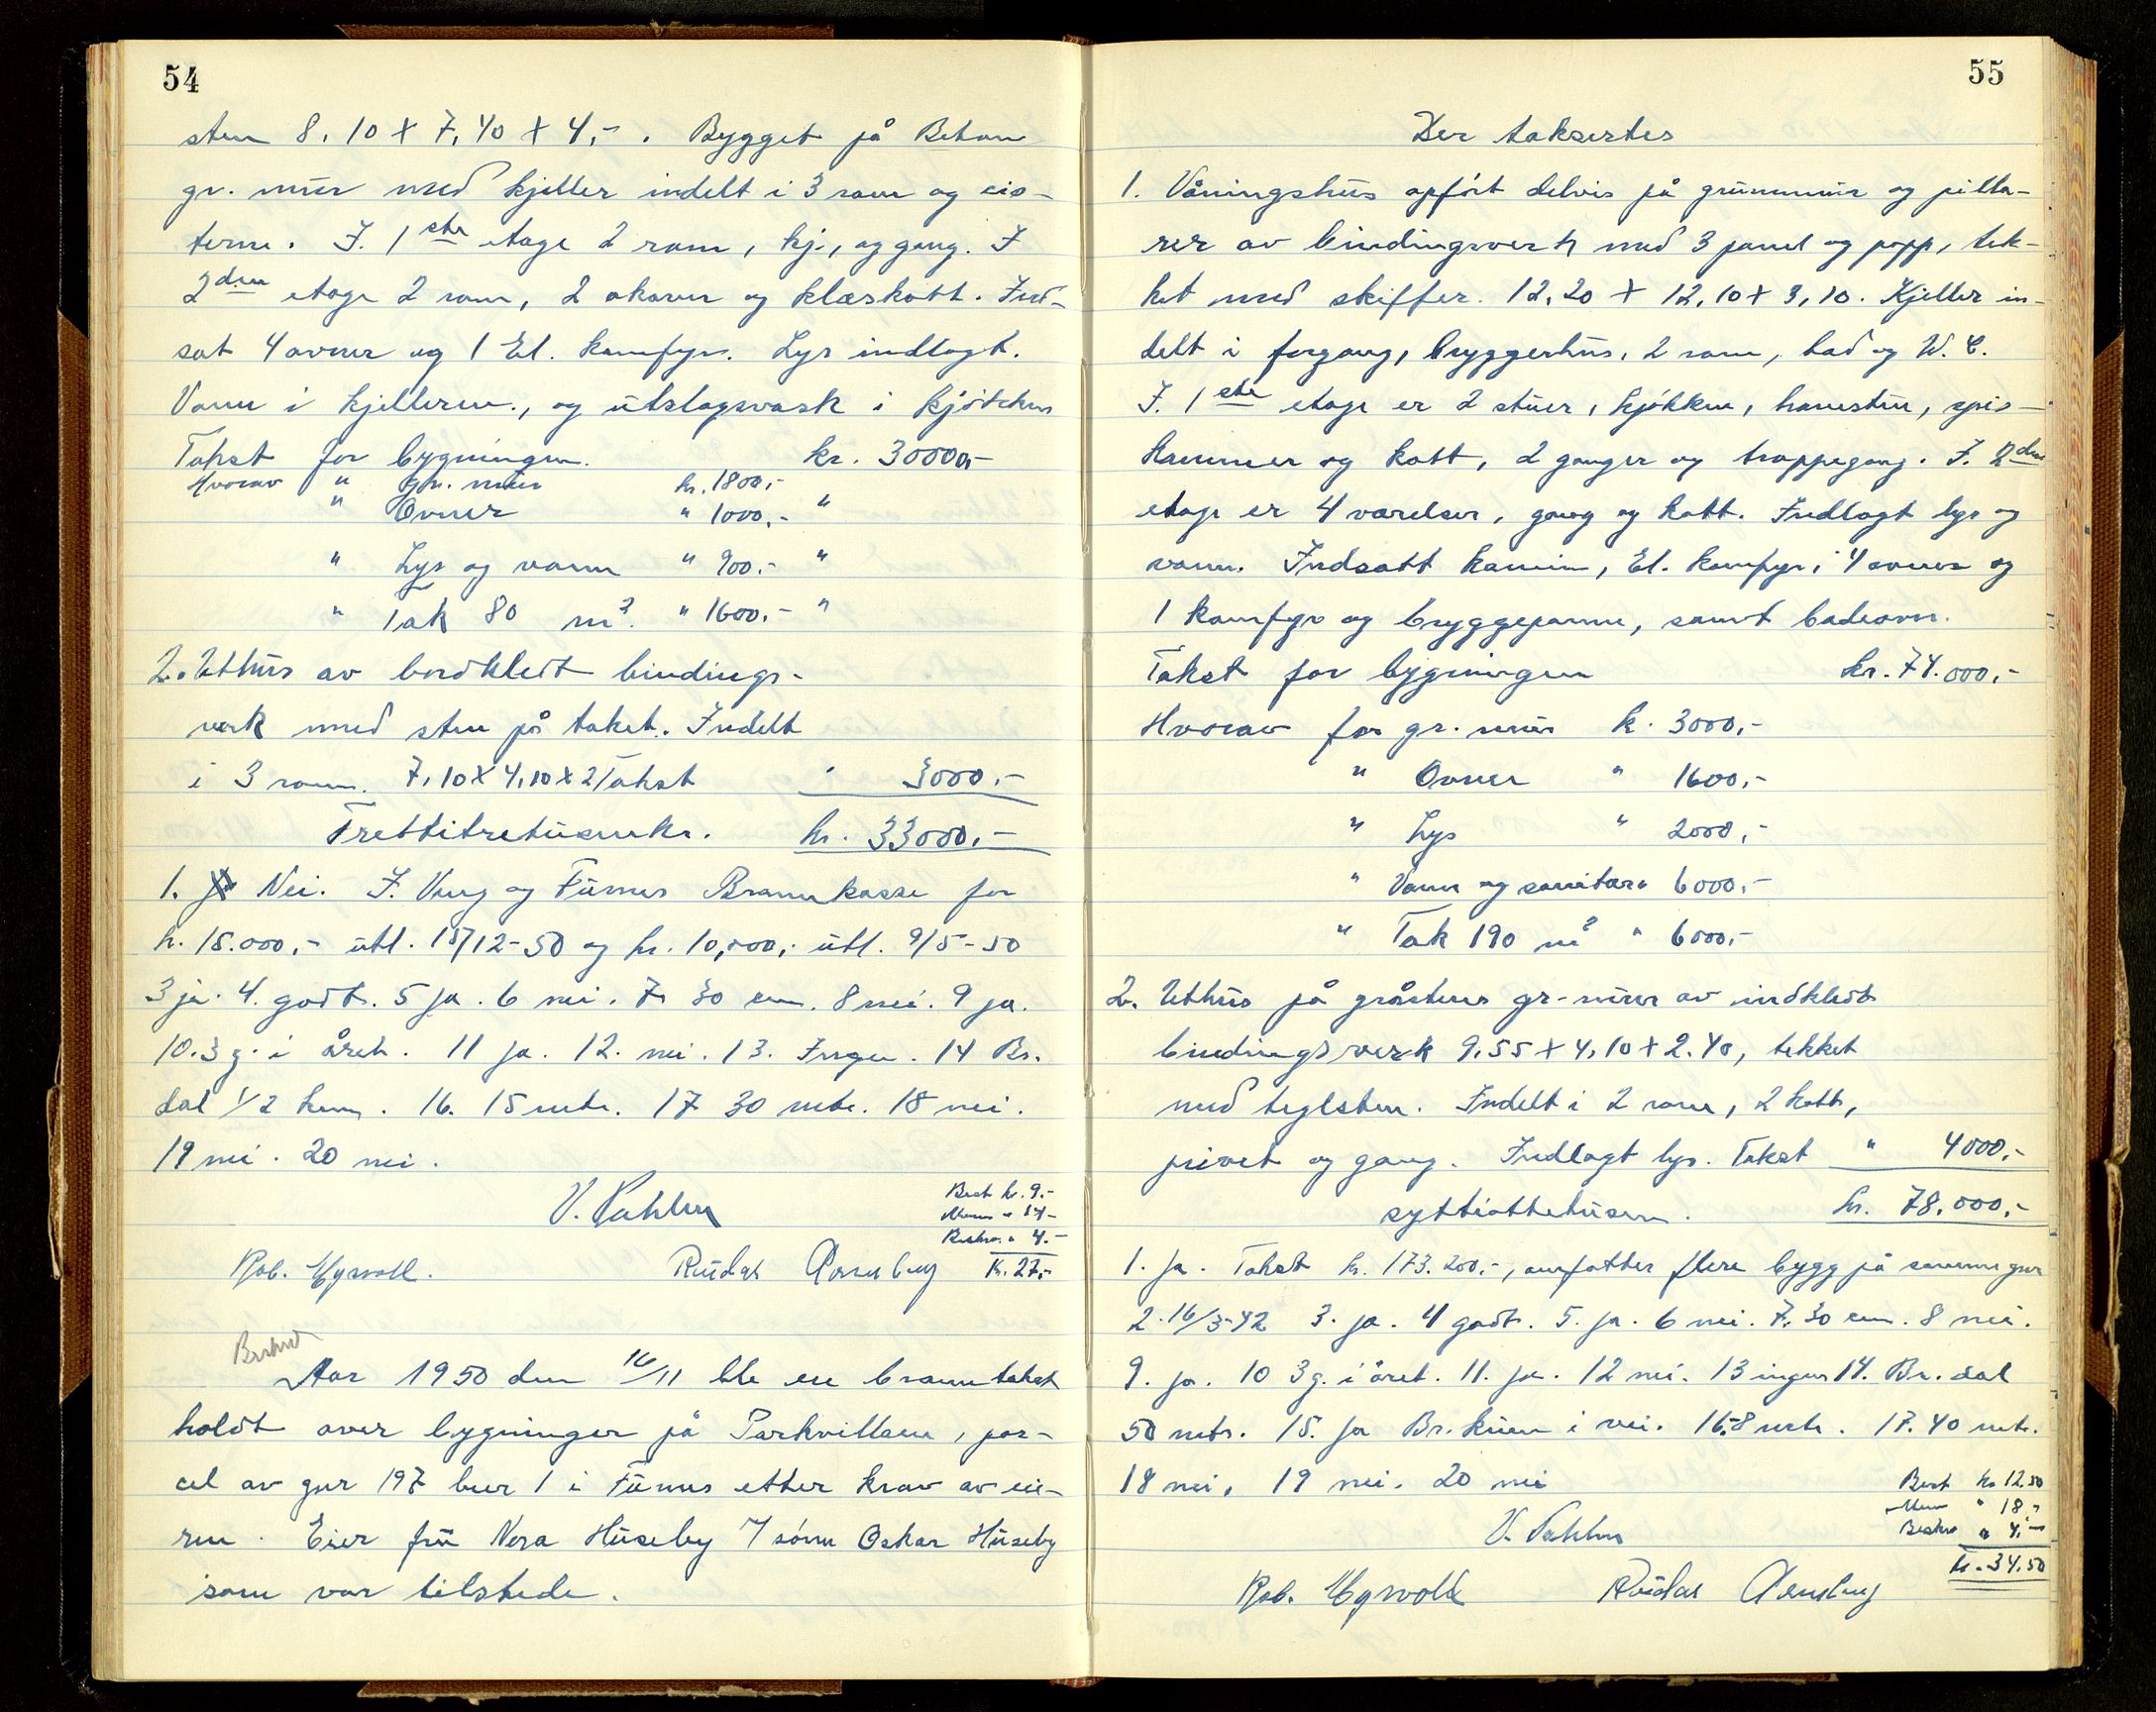 54
sten 8,10 X 7,40 X 4,-. Bygget på Beton
gr. mur med kjeller indelt i 3 rom og cis-
terne. I. 1ste etage 2 rom, kj., og gang. I
2dre etage 2 rom, 2 akaver og klæskott. Ind-
sat 4 ovner og 1 El. komfyr. Lys indlagt.
Vann i kjelleren., og utslagsvask i kjökken
Takst for bygningen. kr. 30000,-
Hvorav " gr. mur kr. 1800,-
" Ovner " 1000,- "
" Lys og vann " 900,- "
" Tak 80 m². " 1600,- "
2. Uthus av bordkledt bindings-
verk med sten på taket. Indelt
i 3 rom. 7,10 X 4,10 X 2 Takst " 3000,-
Trettitretusenkr. kr. 33000,-
1. Nei. I. Vang og Furnes Brannkasse for
kr. 15.000,- utl. 15/12-50 og kr. 10,000,- utl. 9/5-50
3 ja. 4. godt. 5 ja. 6 nei. 7. 30 cm. 8 nei. 9 ja.
10. 3 g. i året. 11 ja. 12. nei. 13. Ingen. 14 Br.
dal 1/2 km. 16. 15 mtr. 17 30 mtr. 18 nei.
19 nei. 20 nei.
V. Dahlen
Best kr. 9.-
Menn " 14-
Beskr. " 4.-
Kr. 27,-
Rob. Myrvold. Reidar Arnseberg
Beskrev
Aar 1950 den 16/11 ble en branntakst
holdt over bygninger på Parkvillaen, par-
cel av gnr 197 bnr 1 i Furnes etter krav av eie-
ren. Eier fru Nora Huseby v/ sønn Oskar Huseby
som var tilstede.
55
Der taksertes
1. Våningshus opført delvis på grunnmur og pilla-
rer av bindingsverk med 3 panel og papp, tek-
ket med skiffer. 12,20 X 12,10 X 3,10. Kjeller in-
delt i forgang, bryggerhus, 2 rom, bad og W.C.
I. 1ste etage er 2 stuer, kjøkken, havestue, spis-
kammer og kott, 2 ganger og trappegang. I. 2dre
etage er 4 værelser, gang og kott. Indlagt lys og
vann. Indsatt kamin, El. komfyr, 4 ovner og
1 komfyr og bryggepanne, samt badeovn.
Takst for bygningen kr. 74.000,-
Hvorav for gr. mur kr. 3000,-
" Ovner " 1600,-
" Lys " 2000,-
" Vann og sanitær " 6000,-
" Tak 190 m² " 6000,-
2. Uthus på gråstens gr-mur av indkledt
bindingsverk 9,55 X 4,10 X 2.40, tekket
med teglsten. Indelt i 2 rom, 2 kott,
privet og gang. Indlagt lys. Takst " 4000,-
syttiåttetusen. kr. 78.000,-
1. Ja. Takst kr. 173.200,-, omfatter flere bygg på samme gnr
2. 16/3-42 3. ja. 4 godt. 5. ja. 6 nei. 7. 30 cm. 8 nei.
9. ja. 10 3 g. i året. 11. ja. 12 nei. 13 ingen 14. Br. dal
50 mtr. 15. ja Br. kum i vei. 16. 8 mtr. 17. 40 mtr.
18 nei. 19 nei. 20 nei
Best kr 12,50
Menn " 18,-
Beskr " 4,-
kr. 34,50
V. Dahlen
Rob. Myrvold Reidar Arnseberg